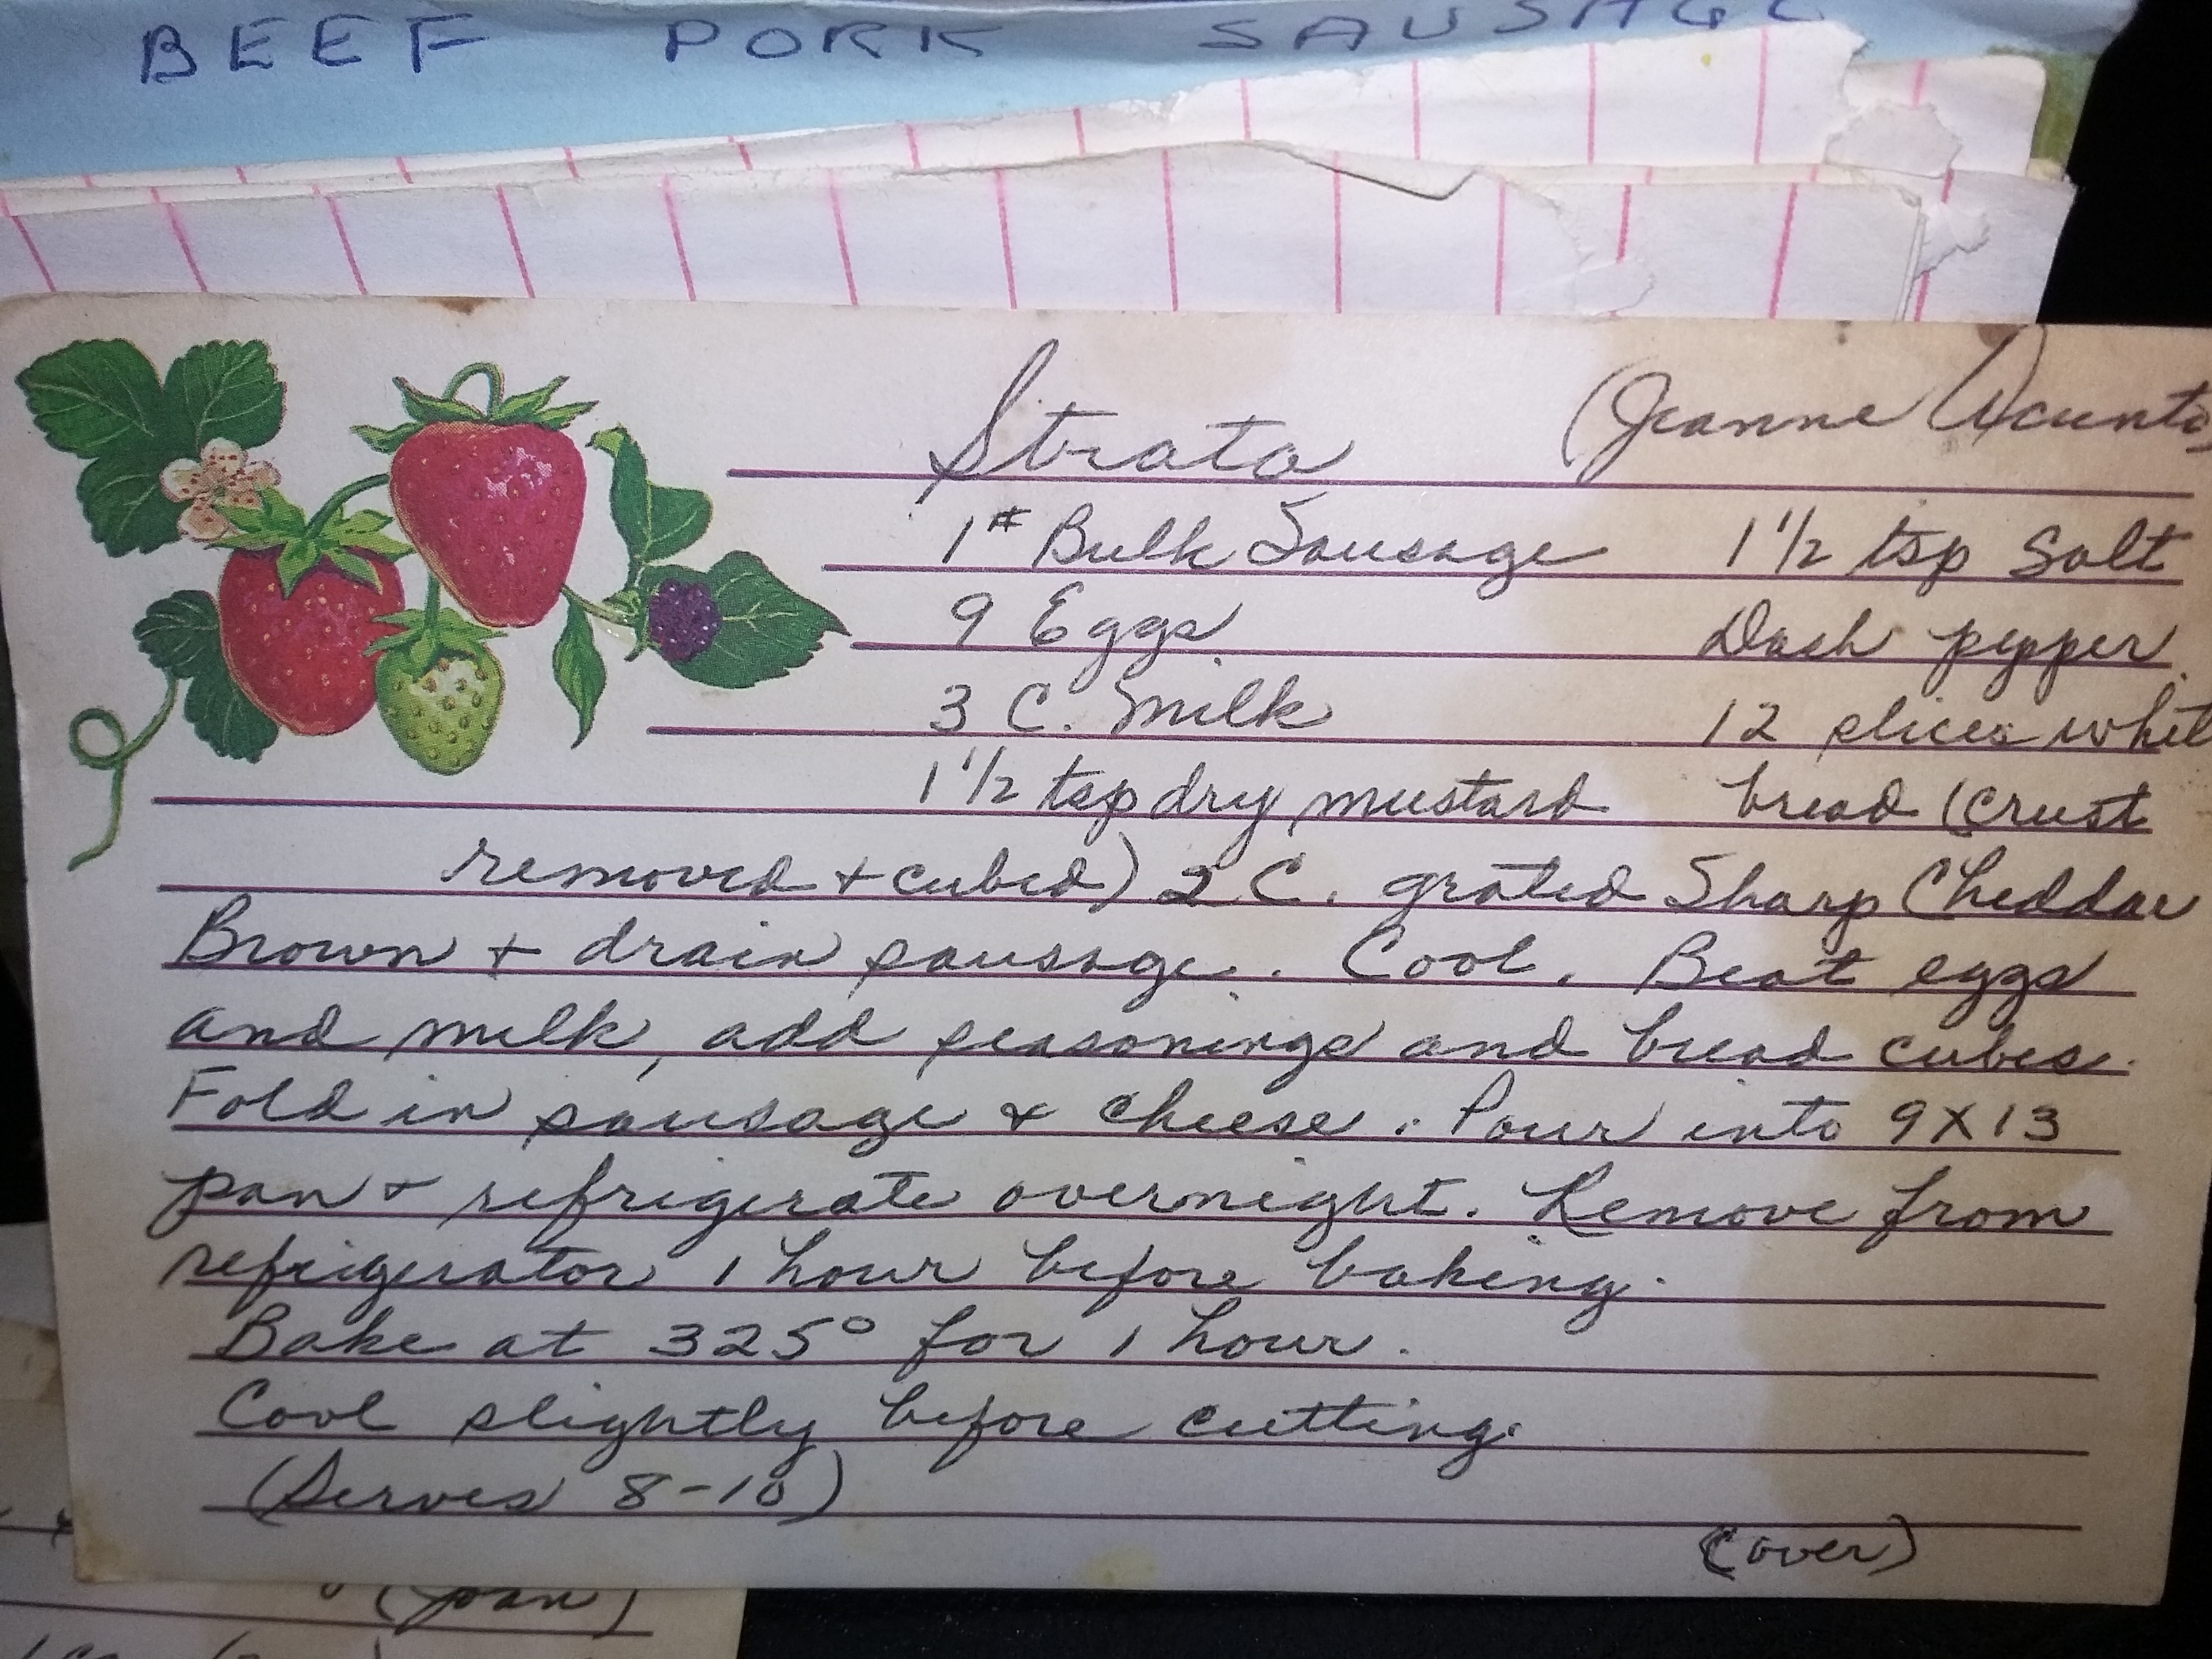 BEEF PORK SAUSAGE
Strata (Jeanne Acunto)
1# Bulk Sausage 1 1/2 tsp Salt
9 Eggs Dash pepper
3 C. Milk 12 slices whit
1 1/2 tsp dry mustard bread (crust
removed + cubed) 2 C. grated Sharp Cheddar
Brown + drain sausage. Cool. Beat eggs
and milk, add seasonings and bread cubes.
Fold in sausage & cheese. Pour into 9X13
pan + refrigerate overnight. Remove from
refrigerator 1 hour before baking.
Bake at 325° for 1 hour.
Cool slightly before cutting.
(Serves 8-10)
(over)
(Joan)